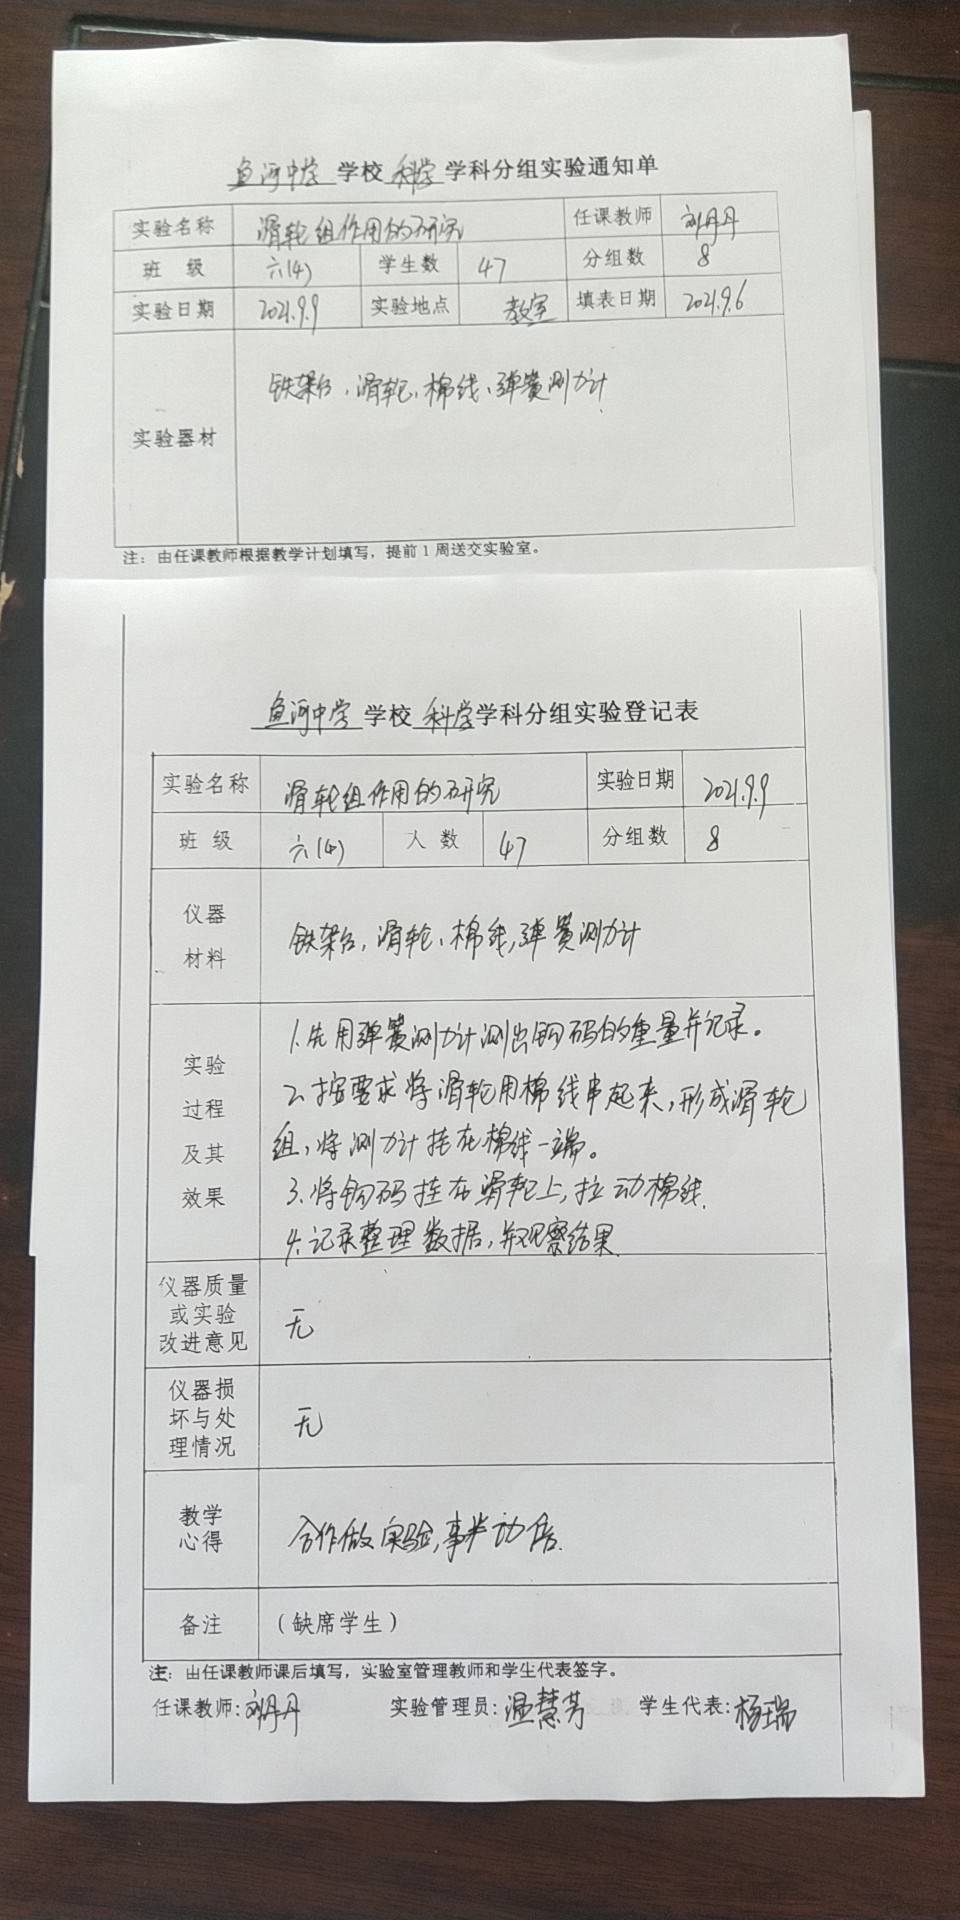 鱼河中学 学校 科学 学科分组实验通知单
实验名称 滑轮组作用的研究 任课教师 刘丹丹
班 级 六(4) 学生数 47 分组数 8
实验日期 2021.9.9 实验地点 教室 填表日期 2021.9.6
实验器材 铁架台、滑轮、棉线、弹簧测力计
注：由任课教师根据教学计划填写，提前1周送交实验室。
鱼河中学 学校 科学 学科分组实验登记表
实验名称 滑轮组作用的研究 实验日期 2021.9.9
班 级 六(4) 人 数 47 分组数 8
仪器材料 铁架台，滑轮、棉线，弹簧测力计
实验过程及其效果
1.先用弹簧测力计测出钩码的重量并记录。
2.按要求将滑轮用棉线串起来，形成滑轮
组，将测力计挂在棉线一端。
3.将钩码挂在滑轮上，拉动棉线.
4.记录整理数据，并观察结果.
仪器质量或实验改进意见 无
仪器损坏与处理情况 无
教学心得 合作做实验，事半功倍.
备注 （缺席学生）
注：由任课教师课后填写，实验室管理教师和学生代表签字。
任课教师:刘丹丹 实验管理员:温慧芳 学生代表:杨瑞